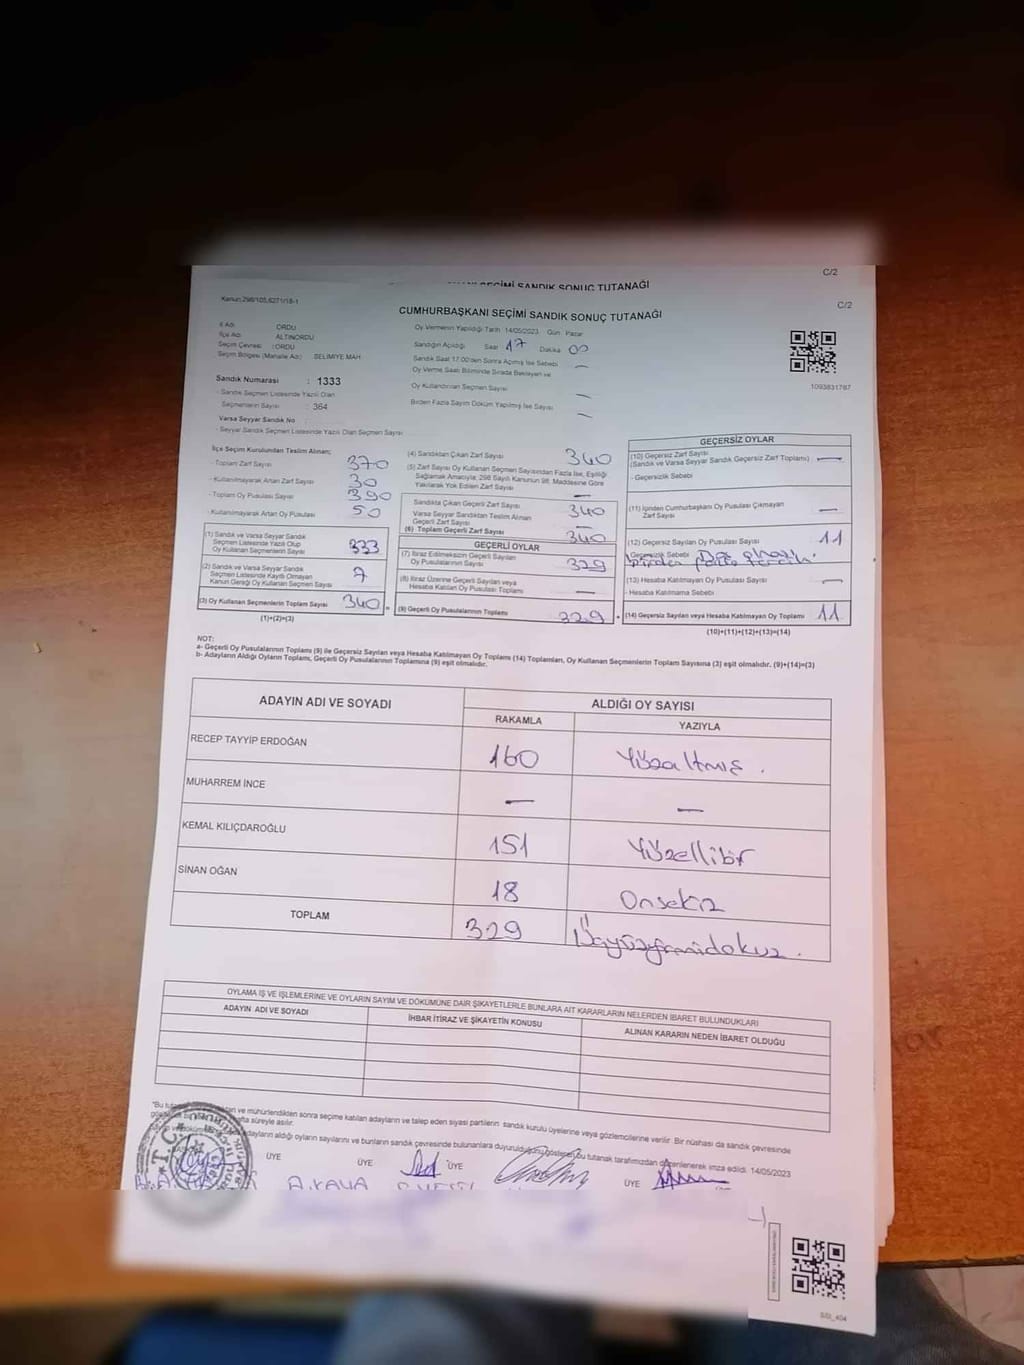 C/2
SEÇİMİ SANDIK SONUÇ TUTANAĞI
C/2
Kanun:298/105,6271/18-1
CUMHURBAŞKANI SEÇİMİ SANDIK SONUÇ TUTANAĞI
İl Adı : ORDU
İlçe Adı : ALTINORDU
Seçim Çevresi : ORDU
Seçim Bölgesi (Mahalle Adı) : SELİMİYE MAH.
Sandık Numarası : 1333
- Sandık Seçmen Listesinde Yazılı Olan
Seçmenlerin Sayısı : 364
Varsa Seyyar Sandık No :
- Seyyar Sandık Seçmen Listesinde Yazılı Olan Seçmen Sayısı
Oy Vermenin Yapıldığı Tarih 14/05/2023 Gün Pazar
Sandığın Açıldığı Saat 17 Dakika 00
Sandık Saat 17.00'den Sonra Açılmış İse Sebebi —
Oy Verme Saati Bitiminde Sırada Bekleyen ve
Oy Kullandırılan Seçmen Sayısı —
Birden Fazla Sayım Döküm Yapılmış İse Sayısı —
1093831787
İlçe Seçim Kurulundan Teslim Alınan;
- Toplam Zarf Sayısı 370
- Kullanılmayarak Artan Zarf Sayısı 30
- Toplam Oy Pusulası Sayısı 390
- Kullanılmayarak Artan Oy Pusulası 50
(1) Sandık ve Varsa Seyyar Sandık
Seçmen Listesinde Yazılı Olup
Oy Kullanan Seçmenlerin Sayısı 333
(2) Sandık ve Varsa Seyyar Sandık
Seçmen Listesinde Kayıtlı Olmayan
Kanun Gereği Oy Kullanan Seçmen Sayısı 7
(3) Oy Kullanan Seçmenlerin Toplam Sayısı 340
(1)+(2)=(3)
(4) Sandıktan Çıkan Zarf Sayısı 340
(5) Zarf Sayısı Oy Kullanan Seçmen Sayısından Fazla İse, Eşitliği
Sağlamak Amacıyla; 298 Sayılı Kanunun 98. Maddesine Göre
Yakılarak Yok Edilen Zarf Sayısı —
Sandıkta Çıkan Geçerli Zarf Sayısı 340
Varsa Seyyar Sandıktan Teslim Alınan
Geçerli Zarf Sayısı —
(6) Toplam Geçerli Zarf Sayısı 340
GEÇERLİ OYLAR
(7) İtiraz Edilmeksizin Geçerli Sayılan
Oy Pusulalarının Sayısı 329
(8) İtiraz Üzerine Geçerli Sayılan veya
Hesaba Katılan Oy Pusulası Toplamı —
(9) Geçerli Oy Pusulalarının Toplamı 329
GEÇERSİZ OYLAR
(10) Geçersiz Zarf Sayısı
(Sandık ve Varsa Seyyar Sandık Geçersiz Zarf Toplamı) —
- Geçersizlik Sebebi
(11) İçinden Cumhurbaşkanı Oy Pusulası Çıkmayan
Zarf Sayısı —
(12) Geçersiz Sayılan Oy Pusulası Sayısı 11
- Geçersizlik Sebebi
(13) Hesaba Katılmayan Oy Pusulası Sayısı —
- Hesaba Katılmama Sebebi
(14) Geçersiz Sayılan veya Hesaba Katılmayan Oy Toplamı 11
(10)+(11)+(12)+(13)=(14)
NOT:
a- Geçerli Oy Pusulalarının Toplamı (9) ile Geçersiz Sayılan veya Hesaba Katılmayan Oy Toplamı (14) Toplamları, Oy Kullanan Seçmenlerin Toplam Sayısına (3) eşit olmalıdır. (9)+(14)=(3)
b- Adayların Aldığı Oyların Toplamı, Geçerli Oy Pusulalarının Toplamına (9) eşit olmalıdır.
ADAYIN ADI VE SOYADI
ALDIĞI OY SAYISI
RAKAMLA YAZIYLA
RECEP TAYYİP ERDOĞAN 160 Yüzaltmış .
MUHARREM İNCE — —
KEMAL KILIÇDAROĞLU 151 Yüzellibir
SİNAN OĞAN 18 Onsekiz
TOPLAM 329 Üçyüzyirmidokuz .
OYLAMA İŞ VE İŞLEMLERİNE VE OYLARIN SAYIM VE DÖKÜMÜNE DAİR ŞİKAYETLERLE BUNLARA AİT KARARLARIN NELERDEN İBARET BULUNDUKLARI
ADAYIN ADI VE SOYADI İHBAR İTİRAZ VE ŞİKAYETİN KONUSU ALINAN KARARIN NEDEN İBARET OLDUĞU
ve mühürlendikten sonra seçime katılan adayların ve talep eden siyasi partilerin sandık kurulu üyelerine veya gözlemcilerine verilir. Bir nüshası da sandık çevresinde
hafta süreyle asılır.
adayların aldığı oyların sayılarını ve bunların sandık çevresinde bulunanlara duyurulduğunu gösteren bu tutanak tarafımızdan düzenlenerek imza edildi. 14/05/2023
ÜYE ÜYE ÜYE ÜYE
A.KAYA